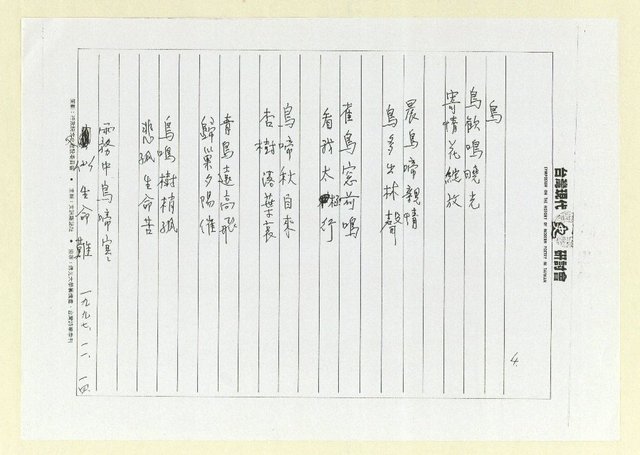 台灣現代詩史研討會
SYMPOSIUM ON THE HISTORY OF MODERN POETRY IN TAIWAN
鳥
鳥歡鳴曉光
寄情花綻放
晨鳥啼親情
鳥多出林聲
雀鳥窓前鳴
看我太極行
鳥啼秋自來
杏樹落葉哀
青鳥遠高飛
歸巢夕陽催
鳥鳴樹梢孤
悲孤生命苦
雨霧中鳥啼寒
生命難
一九九七、一一、一四
4.